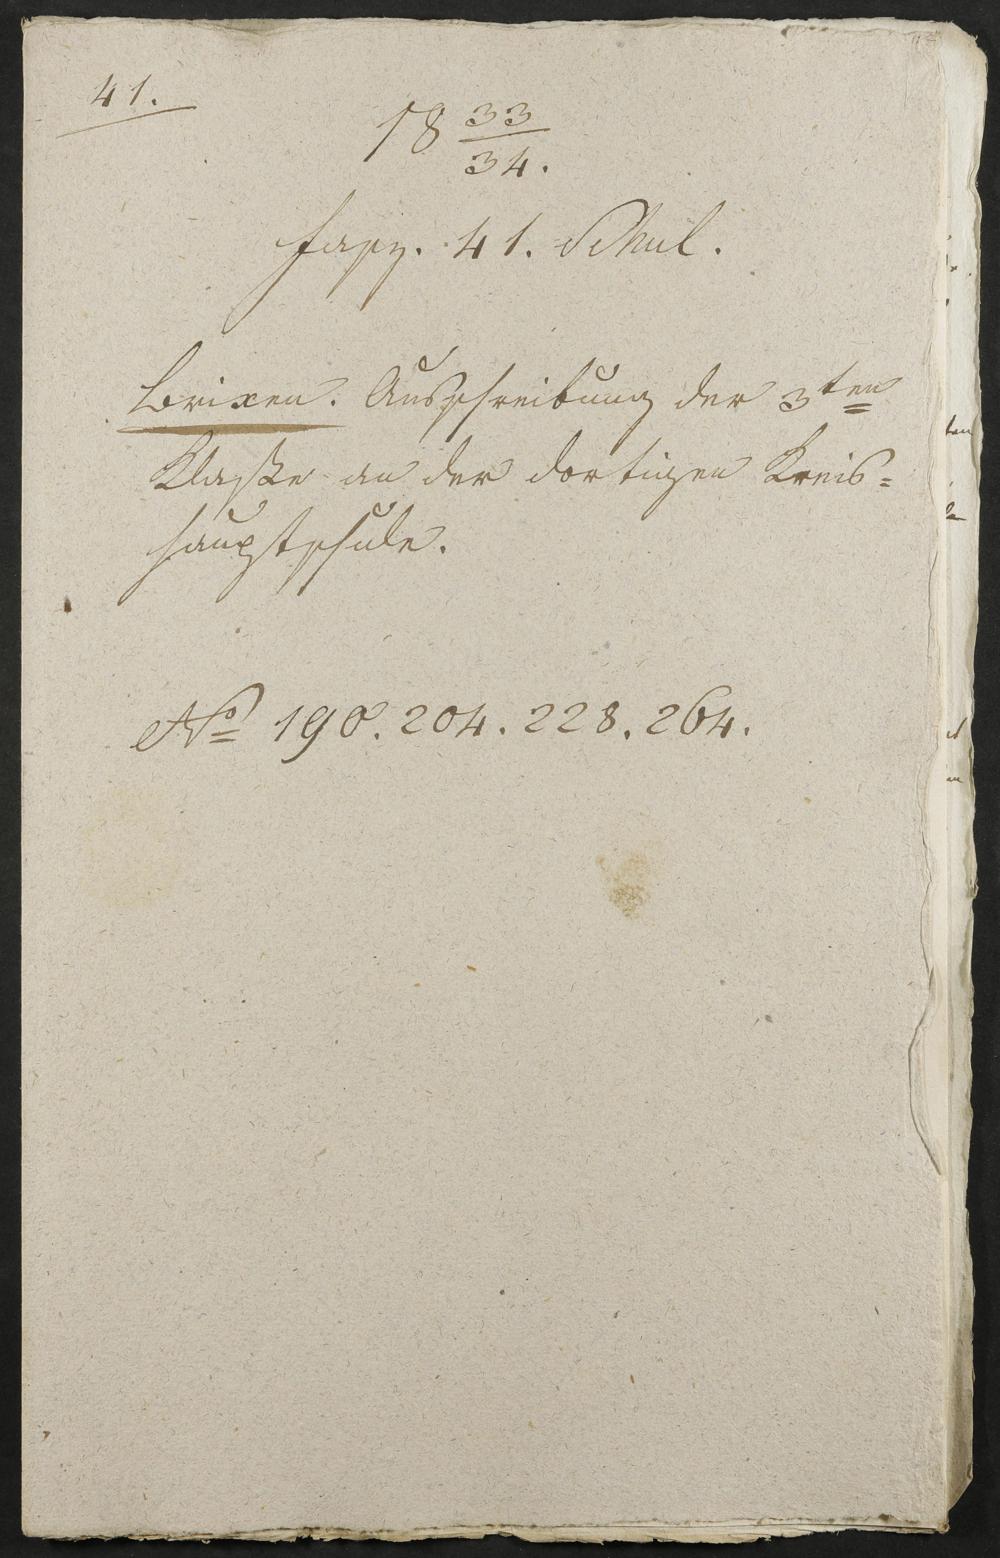 41.
18 33/34.
Fasz. 41. Schul.
Brixen. Ausschreibung der 3ten
Klaße an der dortigen Kreis=
hauptschule.
No 190. 204. 228. 264.